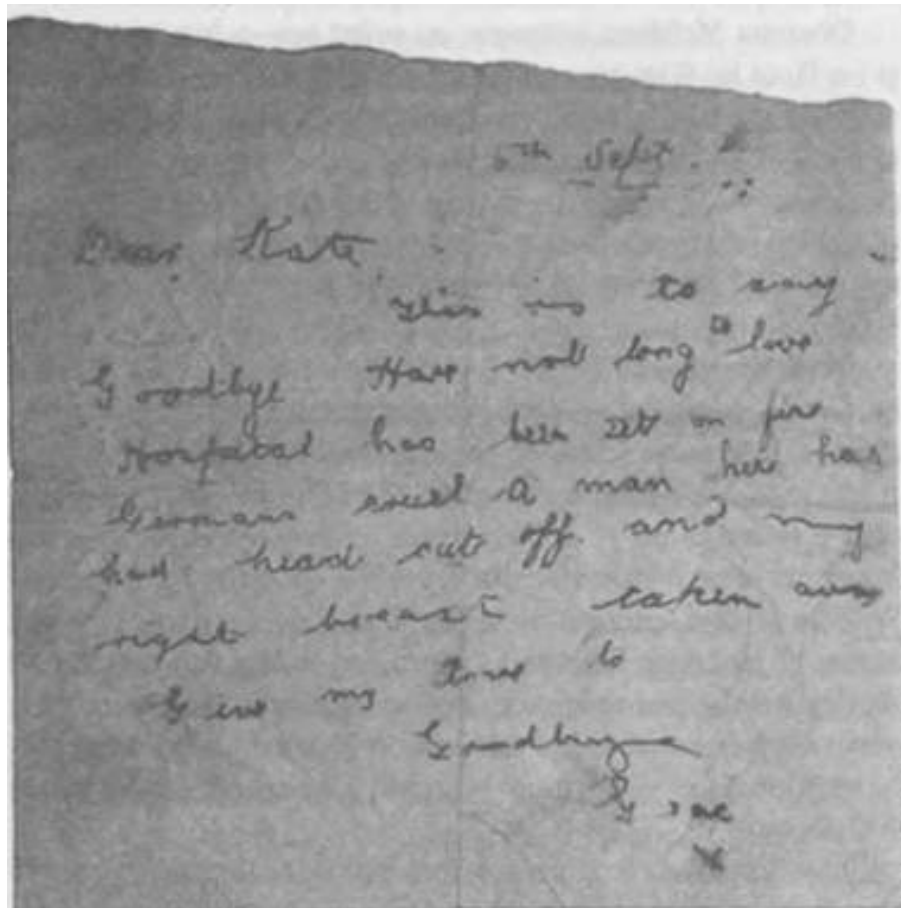 6th Sept.
Dear Kate,
This is to say
Goodbye Have not long to live
Hospital has been set on fire
Germans cruel A man here has
had head cut off. and my
right breast taken away
Give my love to
Goodbye
Grace
X